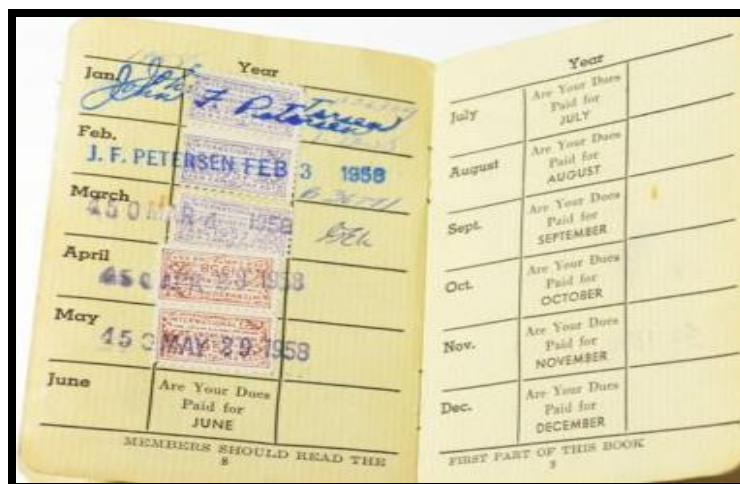 Year
Jan.
John F Petersen
Feb.
J. F. PETERSEN FEB 3 1958
March
450 MAR 4 1958
April
450 APR 29 1958
May
450 MAY 29 1958
June
Are Your Dues
Paid for
JUNE
MEMBERS SHOULD READ THE
8
Year
July
Are Your Dues
Paid for
JULY
August
Are Your Dues
Paid for
AUGUST
Sept.
Are Your Dues
Paid for
SEPTEMBER
Oct.
Are Your Dues
Paid for
OCTOBER
Nov.
Are Your Dues
Paid for
NOVEMBER
Dec.
Are Your Dues
Paid for
DECEMBER
FIRST PART OF THIS BOOK